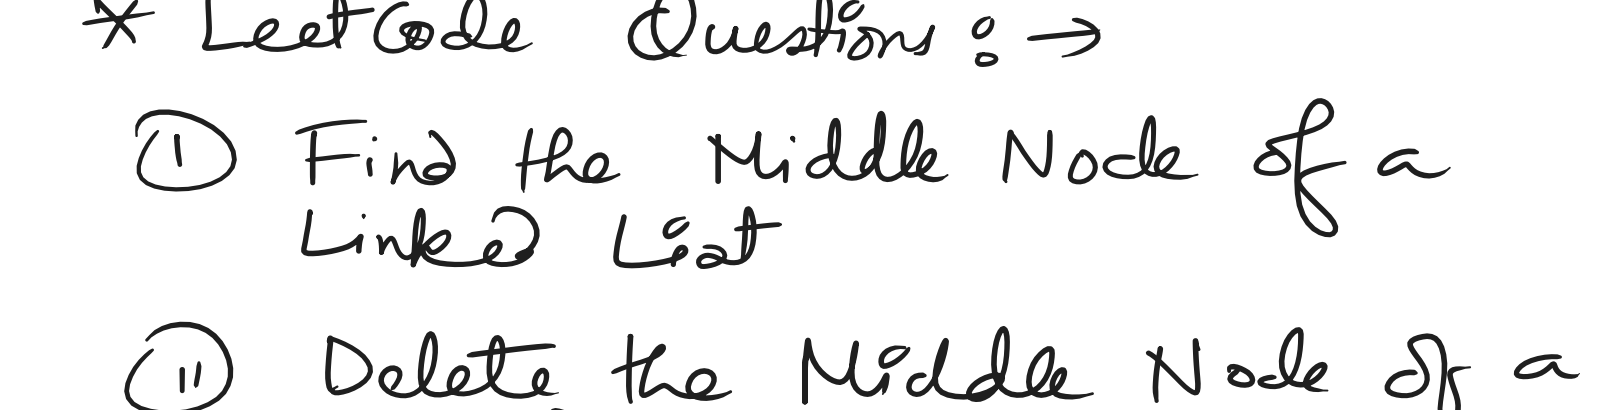 * LeetCode Questions :→
① Find the Middle Node of a
Linked List
⑪ Delete the Middle Node of a